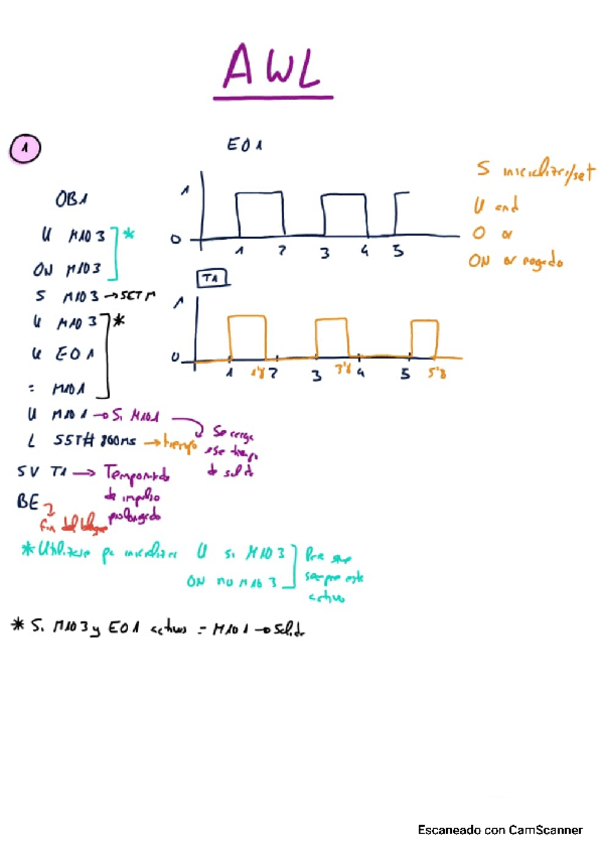 AWL
1
E0 1
S inicializar/set
U and
O or
ON or negado
1
0
1 2 3 4 5
OB1
U M10 3 *
ON M10 3
S M10 3 → SET M
U M10 3 *
U E0 1
= M10 1
U M10 1 → Si M10 1
L S5T# 800ms → tiempo
Se carga
ese tiempo
de salida
SV T1 → Temporizado
de impulso
prolongado
BE
Fin del bloque
T1
1
0
1 1'8 2 3 3'8 4 5 5'8
* Utilizase pa inicializar U si M10 3
ON no M10 3
Para que
siempre este
activo
* Si M10 3 y E0 1 activos = M10 1 → Salida
Escaneado con CamScanner